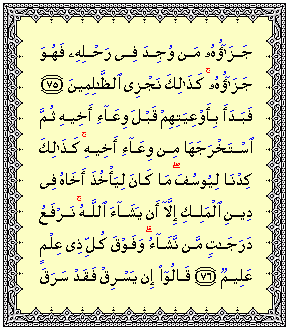 جَزَٰٓؤُهُۥ مَن وُجِدَ فِى رَحْلِهِۦ فَهُوَ
جَزَٰٓؤُهُۥ ۚ كَذَٰلِكَ نَجْزِى ٱلظَّٰلِمِينَ ﴿٧٥﴾
فَبَدَأَ بِأَوْعِيَتِهِمْ قَبْلَ وِعَآءِ أَخِيهِ ثُمَّ
ٱسْتَخْرَجَهَا مِن وِعَآءِ أَخِيهِ ۚ كَذَٰلِكَ
كِدْنَا لِيُوسُفَ ۖ مَا كَانَ لِيَأْخُذَ أَخَاهُ فِى
دِينِ ٱلْمَلِكِ إِلَّآ أَن يَشَآءَ ٱللَّهُ ۚ نَرْفَعُ
دَرَجَٰتٍ مَّن نَّشَآءُ ۗ وَفَوْقَ كُلِّ ذِى عِلْمٍ
عَلِيمٌ ﴿٧٦﴾ قَالُوٓا۟ إِن يَسْرِقْ فَقَدْ سَرَقَ